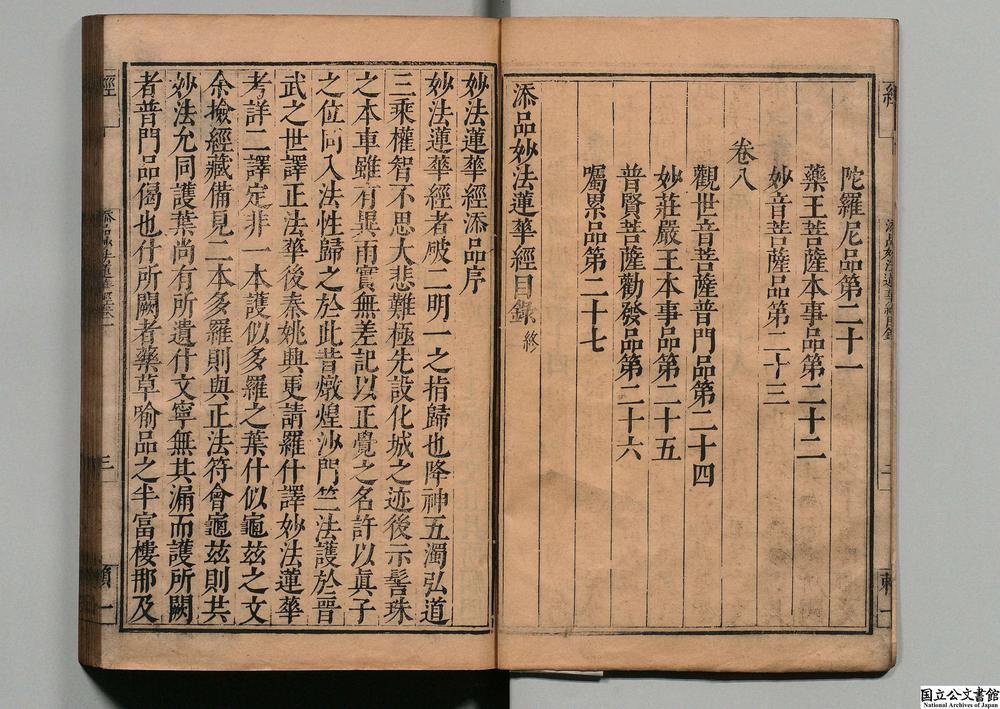 陀羅尼品第二十一
藥王菩薩本事品第二十二
妙音菩薩品第二十三
卷八
觀世音菩薩普門品第二十四
妙莊嚴王本事品第二十五
普賢菩薩勸發品第二十六
囑累品第二十七
添品妙法蓮華經目錄終
妙法蓮華經添品序
妙法蓮華經者破二明一之指歸也降神五濁弘道
三乘權智不思大悲難極先設化城之迹後示髻珠
之本車雖有異雨實無差記以正覺之名許以眞子
之位同入法性歸之於此昔燉煌沙門竺法護於晉
武之世譯正法華後秦姚興更請羅什譯妙法蓮華
考詳二譯定非一本護似多羅之葉什似龜玆之文
余撿經藏備見二本多羅則與正法符會龜玆則共
妙法允同護葉尚有所遺什文寧無其漏而護所闕
者普門品偈也什所闕者藥草喻品之半富樓那及
經
添品妙法蓮華經卷一
三
頼一
国立公文書館
National Archives of Japan